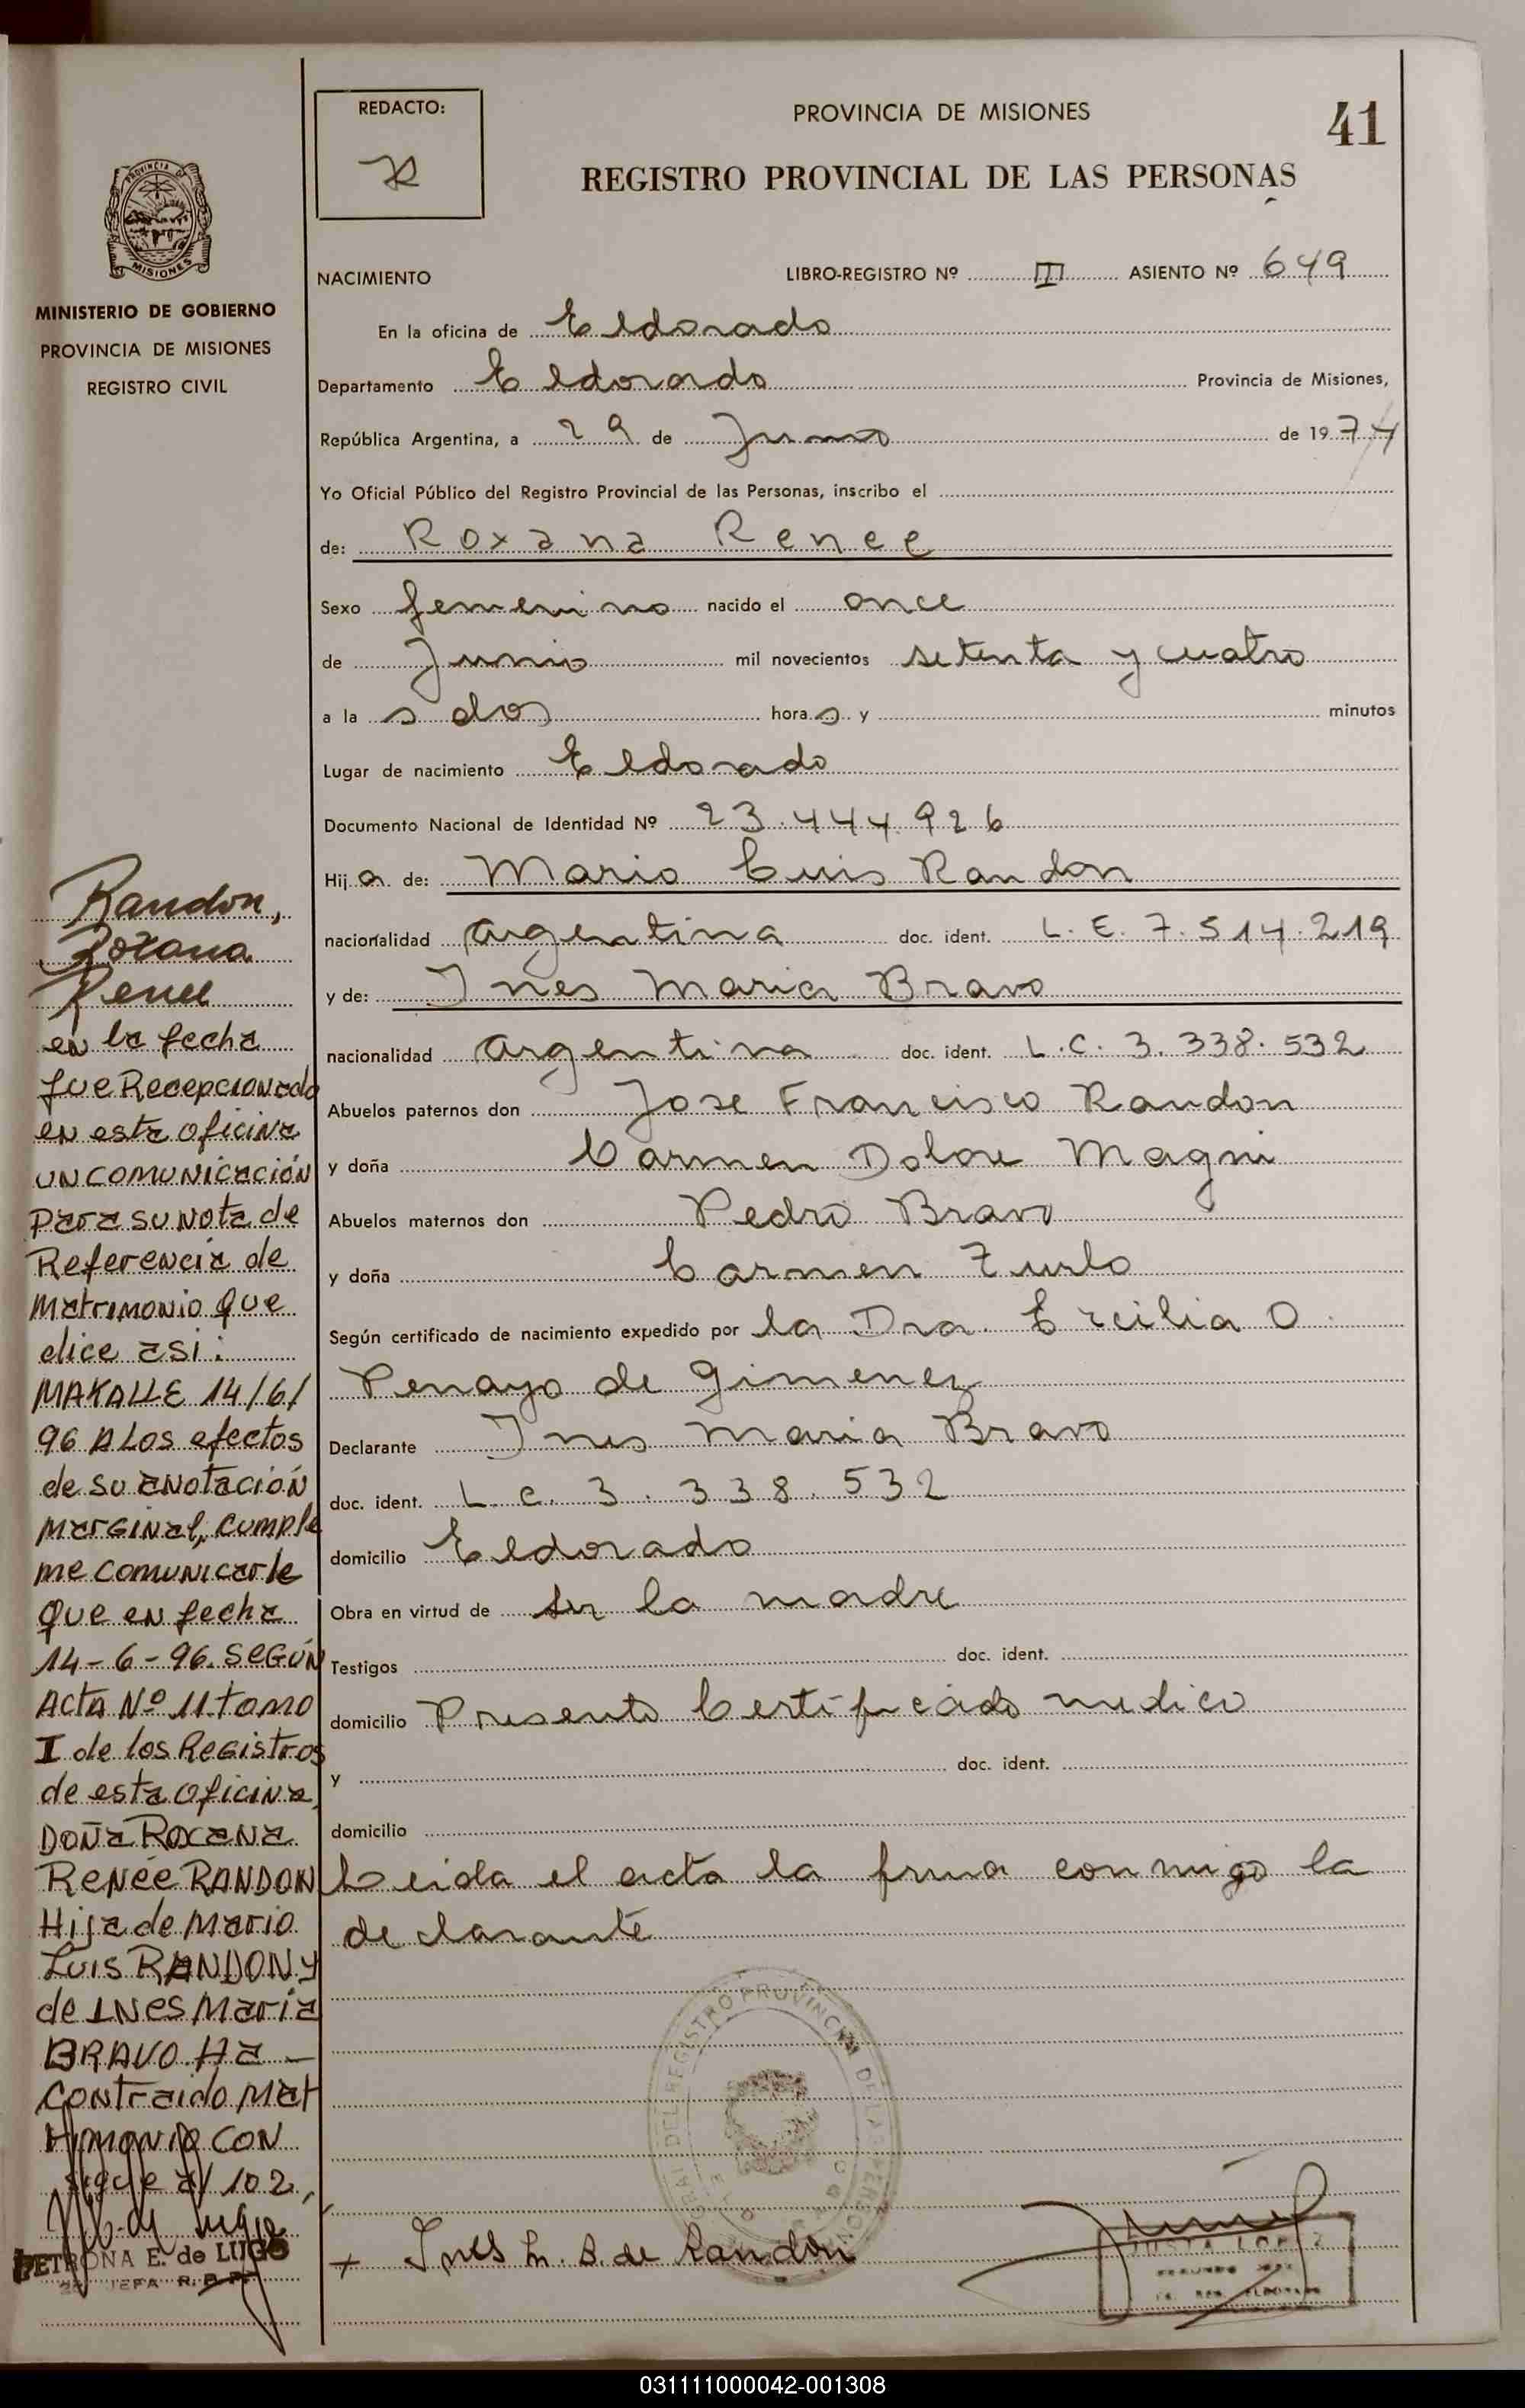 REDACTO:
PROVINCIA DE MISIONES
41
REGISTRO PROVINCIAL DE LAS PERSONAS
PROVINCIA
MISIONES
MINISTERIO DE GOBIERNO
PROVINCIA DE MISIONES
REGISTRO CIVIL
NACIMIENTO LIBRO-REGISTRO Nº III ASIENTO Nº 649
En la oficina de Eldorado
Departamento Eldorado Provincia de Misiones,
República Argentina, a 29 de Junio de 1974
Yo Oficial Público del Registro Provincial de las Personas, inscribo el
de: Roxana Renee
Sexo femenino nacido el once
de Junio mil novecientos setenta y cuatro
a la s dos hora s y minutos
Lugar de nacimiento Eldorado
Documento Nacional de Identidad Nº 23.444.926
Hij a de: Mario Luis Randon
nacionalidad argentina doc. ident. L.E. 7.514.219
y de: Ines Maria Bravo
nacionalidad argentina doc. ident. L.C. 3.338.532
Abuelos paternos don Jose Francisco Randon
y doña Carmen Dolore Magni
Abuelos maternos don Pedro Bravo
y doña Carmen Zurlo
Según certificado de nacimiento expedido por la Dra. Ercilia O.
Penayo de Gimenez
Declarante Ines Maria Bravo
doc. ident. L.C. 3.338.532
domicilio Eldorado
Obra en virtud de ser la madre
Testigos doc. ident.
domicilio Presento Certificado medico
y doc. ident.
domicilio
Leida el acta la firma conmigo la
declarante
Ines M. B de Randon
JUSTA LOPEZ
Randon,
Roxana
Renee
en la fecha
fue Recepcionado
en esta oficina
un comunicación
para su nota de
Referencia de
Matrimonio que
dice asi:
MAKALLE 14/6/
96 A Los efectos
de su anotación
marginal, cumple
me comunicarle
que en fecha
14-6-96. SEGÚN
Acta Nº 11 tomo
I de los Registros
de esta oficina,
DOÑA ROXANA
RENÉE RANDON
Hija de Mario
Luis RANDON y
de INES Maria
BRAVO. Ha -
contraido Mat
rimonio CON
sigue al 102,
PETRONA E. de LUGO
JEFA R.P.P.
031111000042-001308